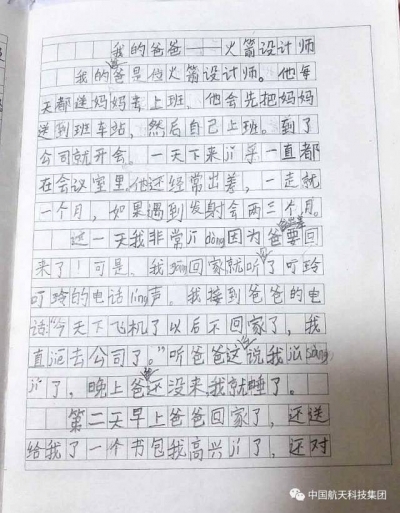 我的爸爸——火箭设计师
我的爸爸是位火箭设计师。他每
天都送妈妈去上班，他会先把妈妈
送到班车站，然后自己上班。到了
公司就开会。一天下来jī乎一直都
在会议室里。他还经常出差，一走就
一个月，如果遇到发射会两三个月。
这一天我非常jī dòng因为爸爸要回
来了！可是、我gāng回家就听了叮玲
叮玲的电话líng声。我接到爸爸的电
话“今天下飞机了以后不回家了，我
直近去公司了。”听爸爸这说我
jí了，晚上爸爸还没来我就睡了。
第二天早上爸爸回家了，还送
给我了一个书包我高兴jí了，还对
中国航天科技集团